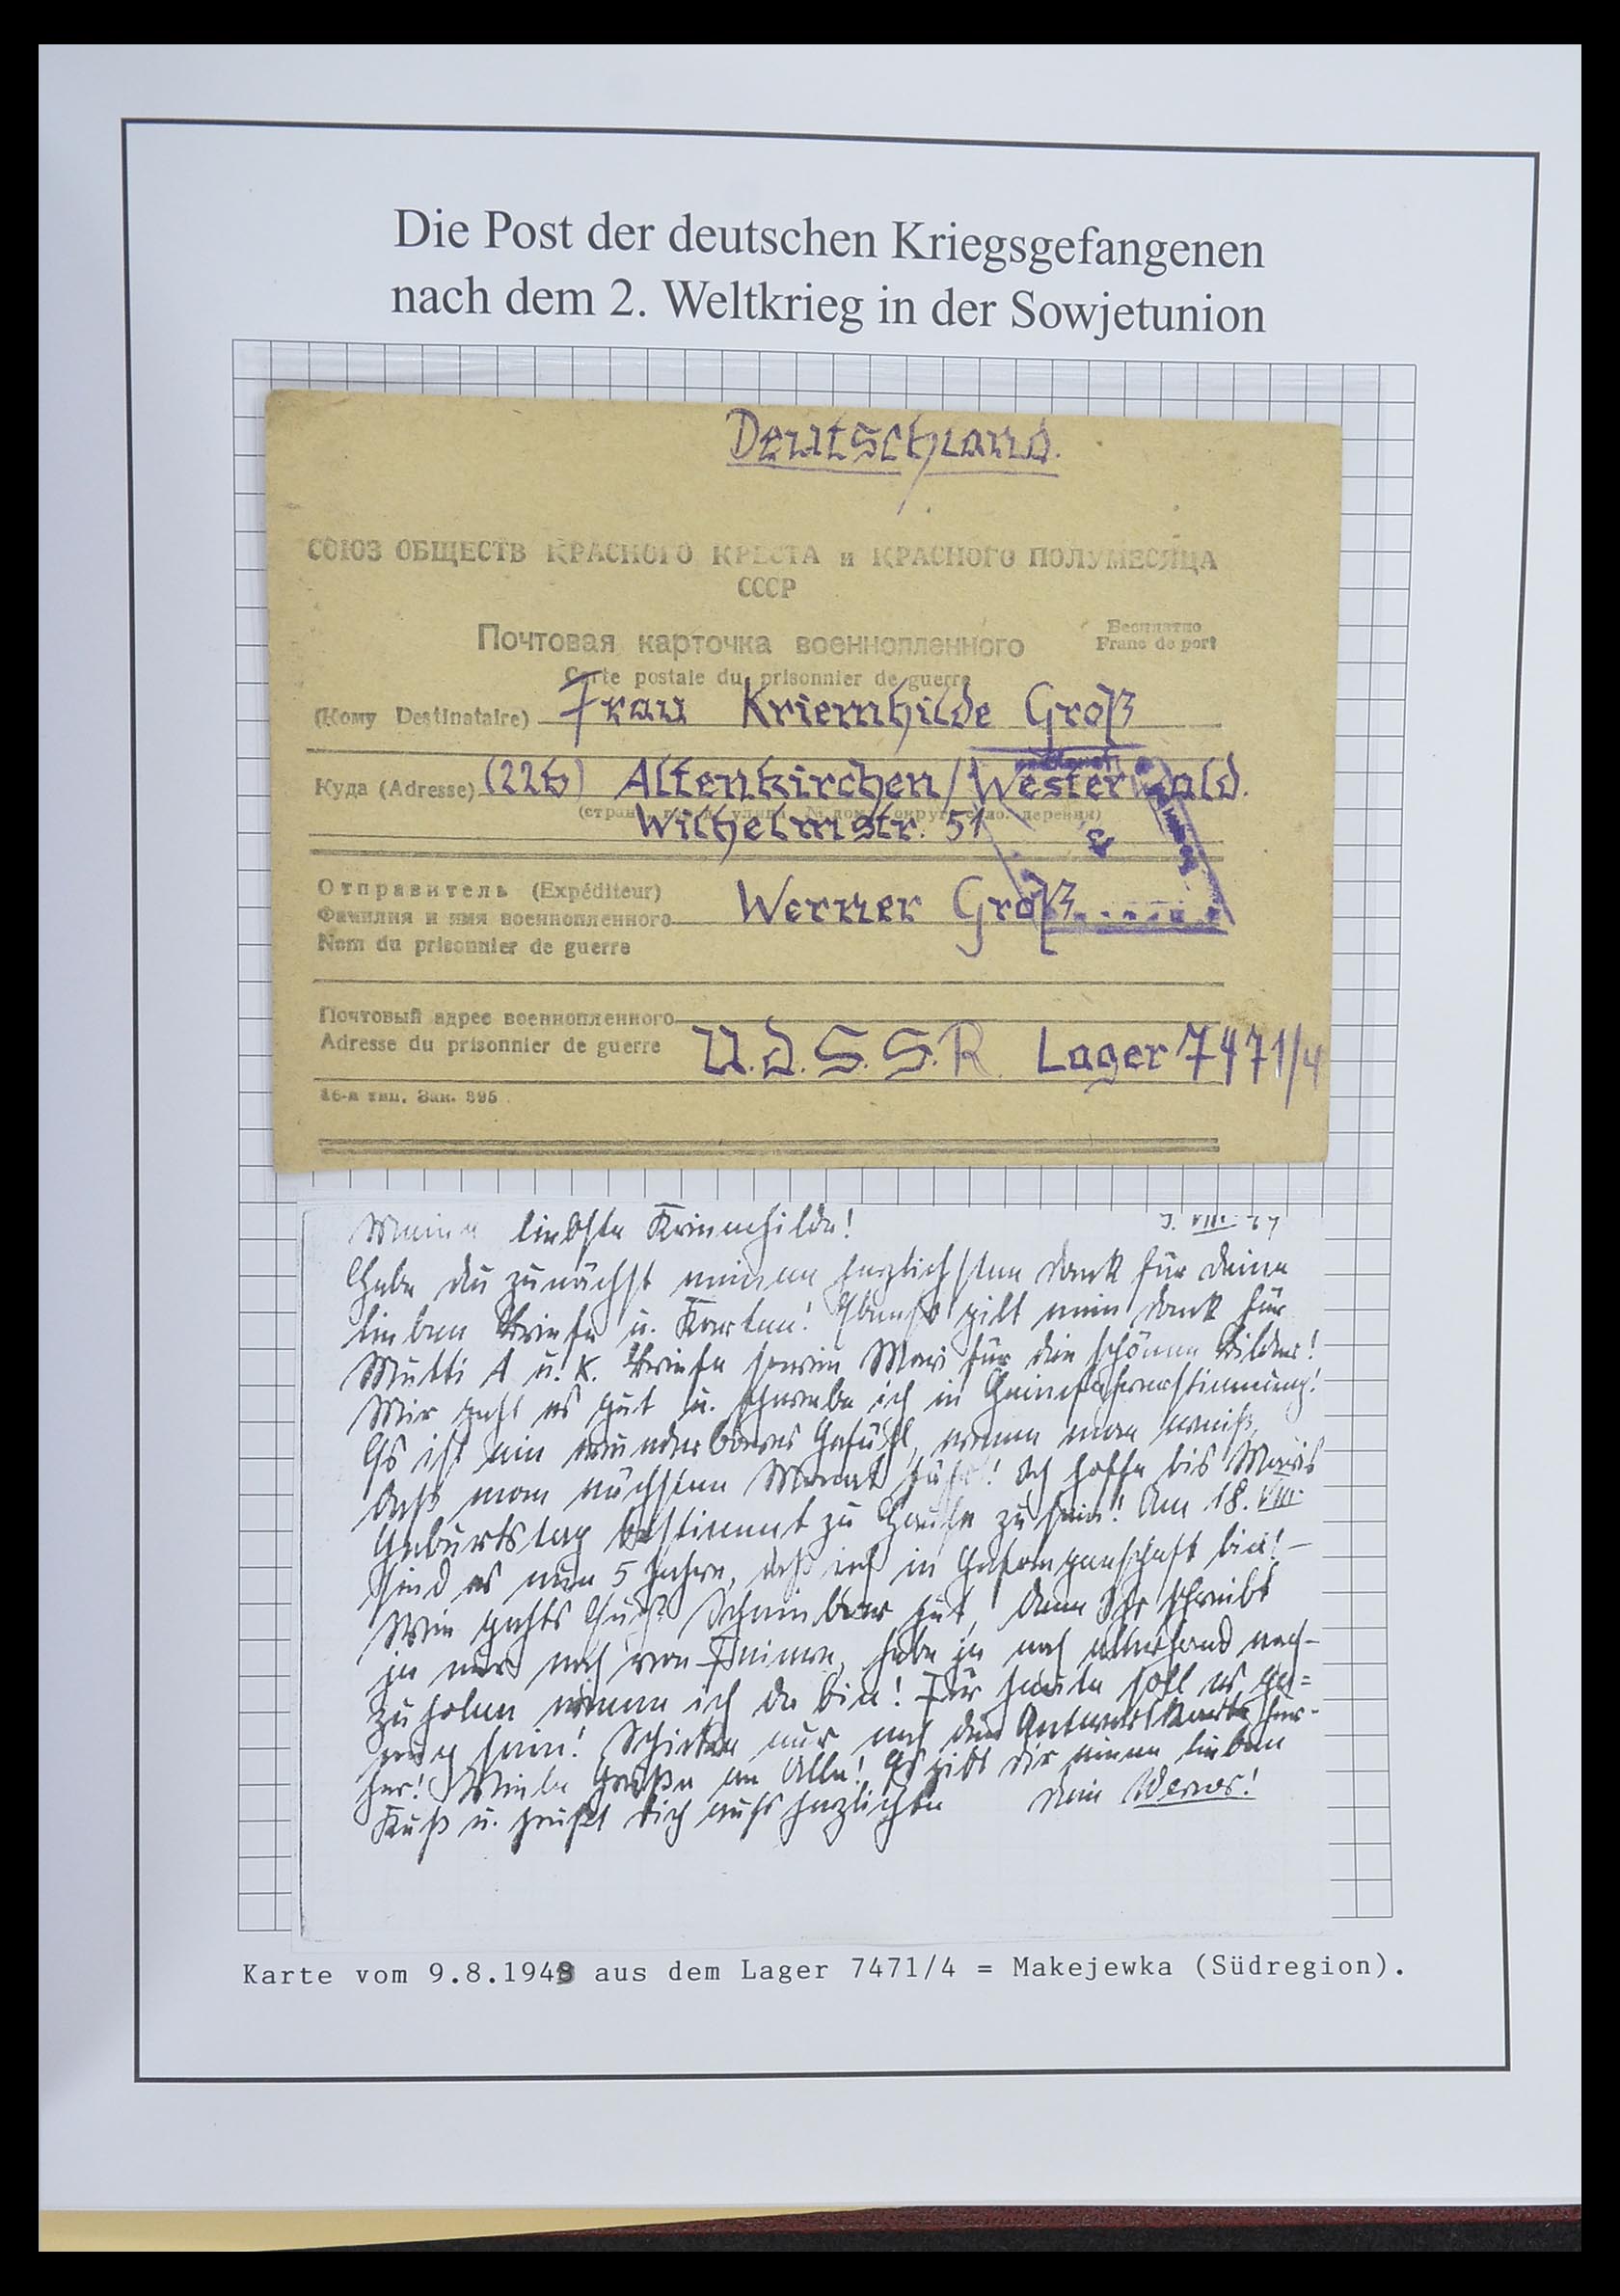 Die Post der deutschen Kriegsgefangenen
nach dem 2. Weltkrieg in der Sowjetunion
Deutschland.
СОЮЗ ОБЩЕСТВ КРАСНОГО КРЕСТА и КРАСНОГО ПОЛУМЕСЯЦА
СССР
Почтовая карточка военнопленного
Бесплатно
Franc de port
Carte postale du prisonnier de guerre
(Кому Destinataire) Frau Kriemhilde Groß
Куда (Adresse) (22b) Altenkirchen/Westerwald.
Wilhelmstr. 51
Отправитель (Expéditeur)
Фамилия и имя военнопленного Werner Groß
Nom du prisonnier de guerre
Почтовый адрес военнопленного
Adresse du prisonnier de guerre U.d.S.S.R. Lager 7471/4
16-я тип. Зак. 895
Meine liebste Kriemhilde!
Habe du zunächst meinen herzlichsten Dank für Deine
lieben Briefe u. Karten! Ebenso gilt mein Dank für
Mutti A u. K. Briefe sowie für die schönen Bilder!
Mir geht es gut u. schwebe ich in
Es ist ein wunderbares Gefühl, wenn man weiß,
daß man nächsten Monat fährt! Ich hoffe bis
Geburtstag bestimmt zu Hause zu sein! Am 18. VIII.
sind es nun 5 Jahre, daß ich in Gefangenschaft bin! –
Wie gehts Euch? Scheinbar gut, denn Ihr schreibt
ja nur noch von Feiern, habe ja noch allerhand nach-
zuholen wenn ich da bin! Für heute soll es ge=
nug sein! Schicke nur noch die Antwortkarte
her! Viele Grüße an Alle! Es gibt Dir einen lieben
Kuß u. grüßt Dich aufs herzlichste Dein Werner!
Karte vom 9.8.1948 aus dem Lager 7471/4 = Makejewka (Südregion).